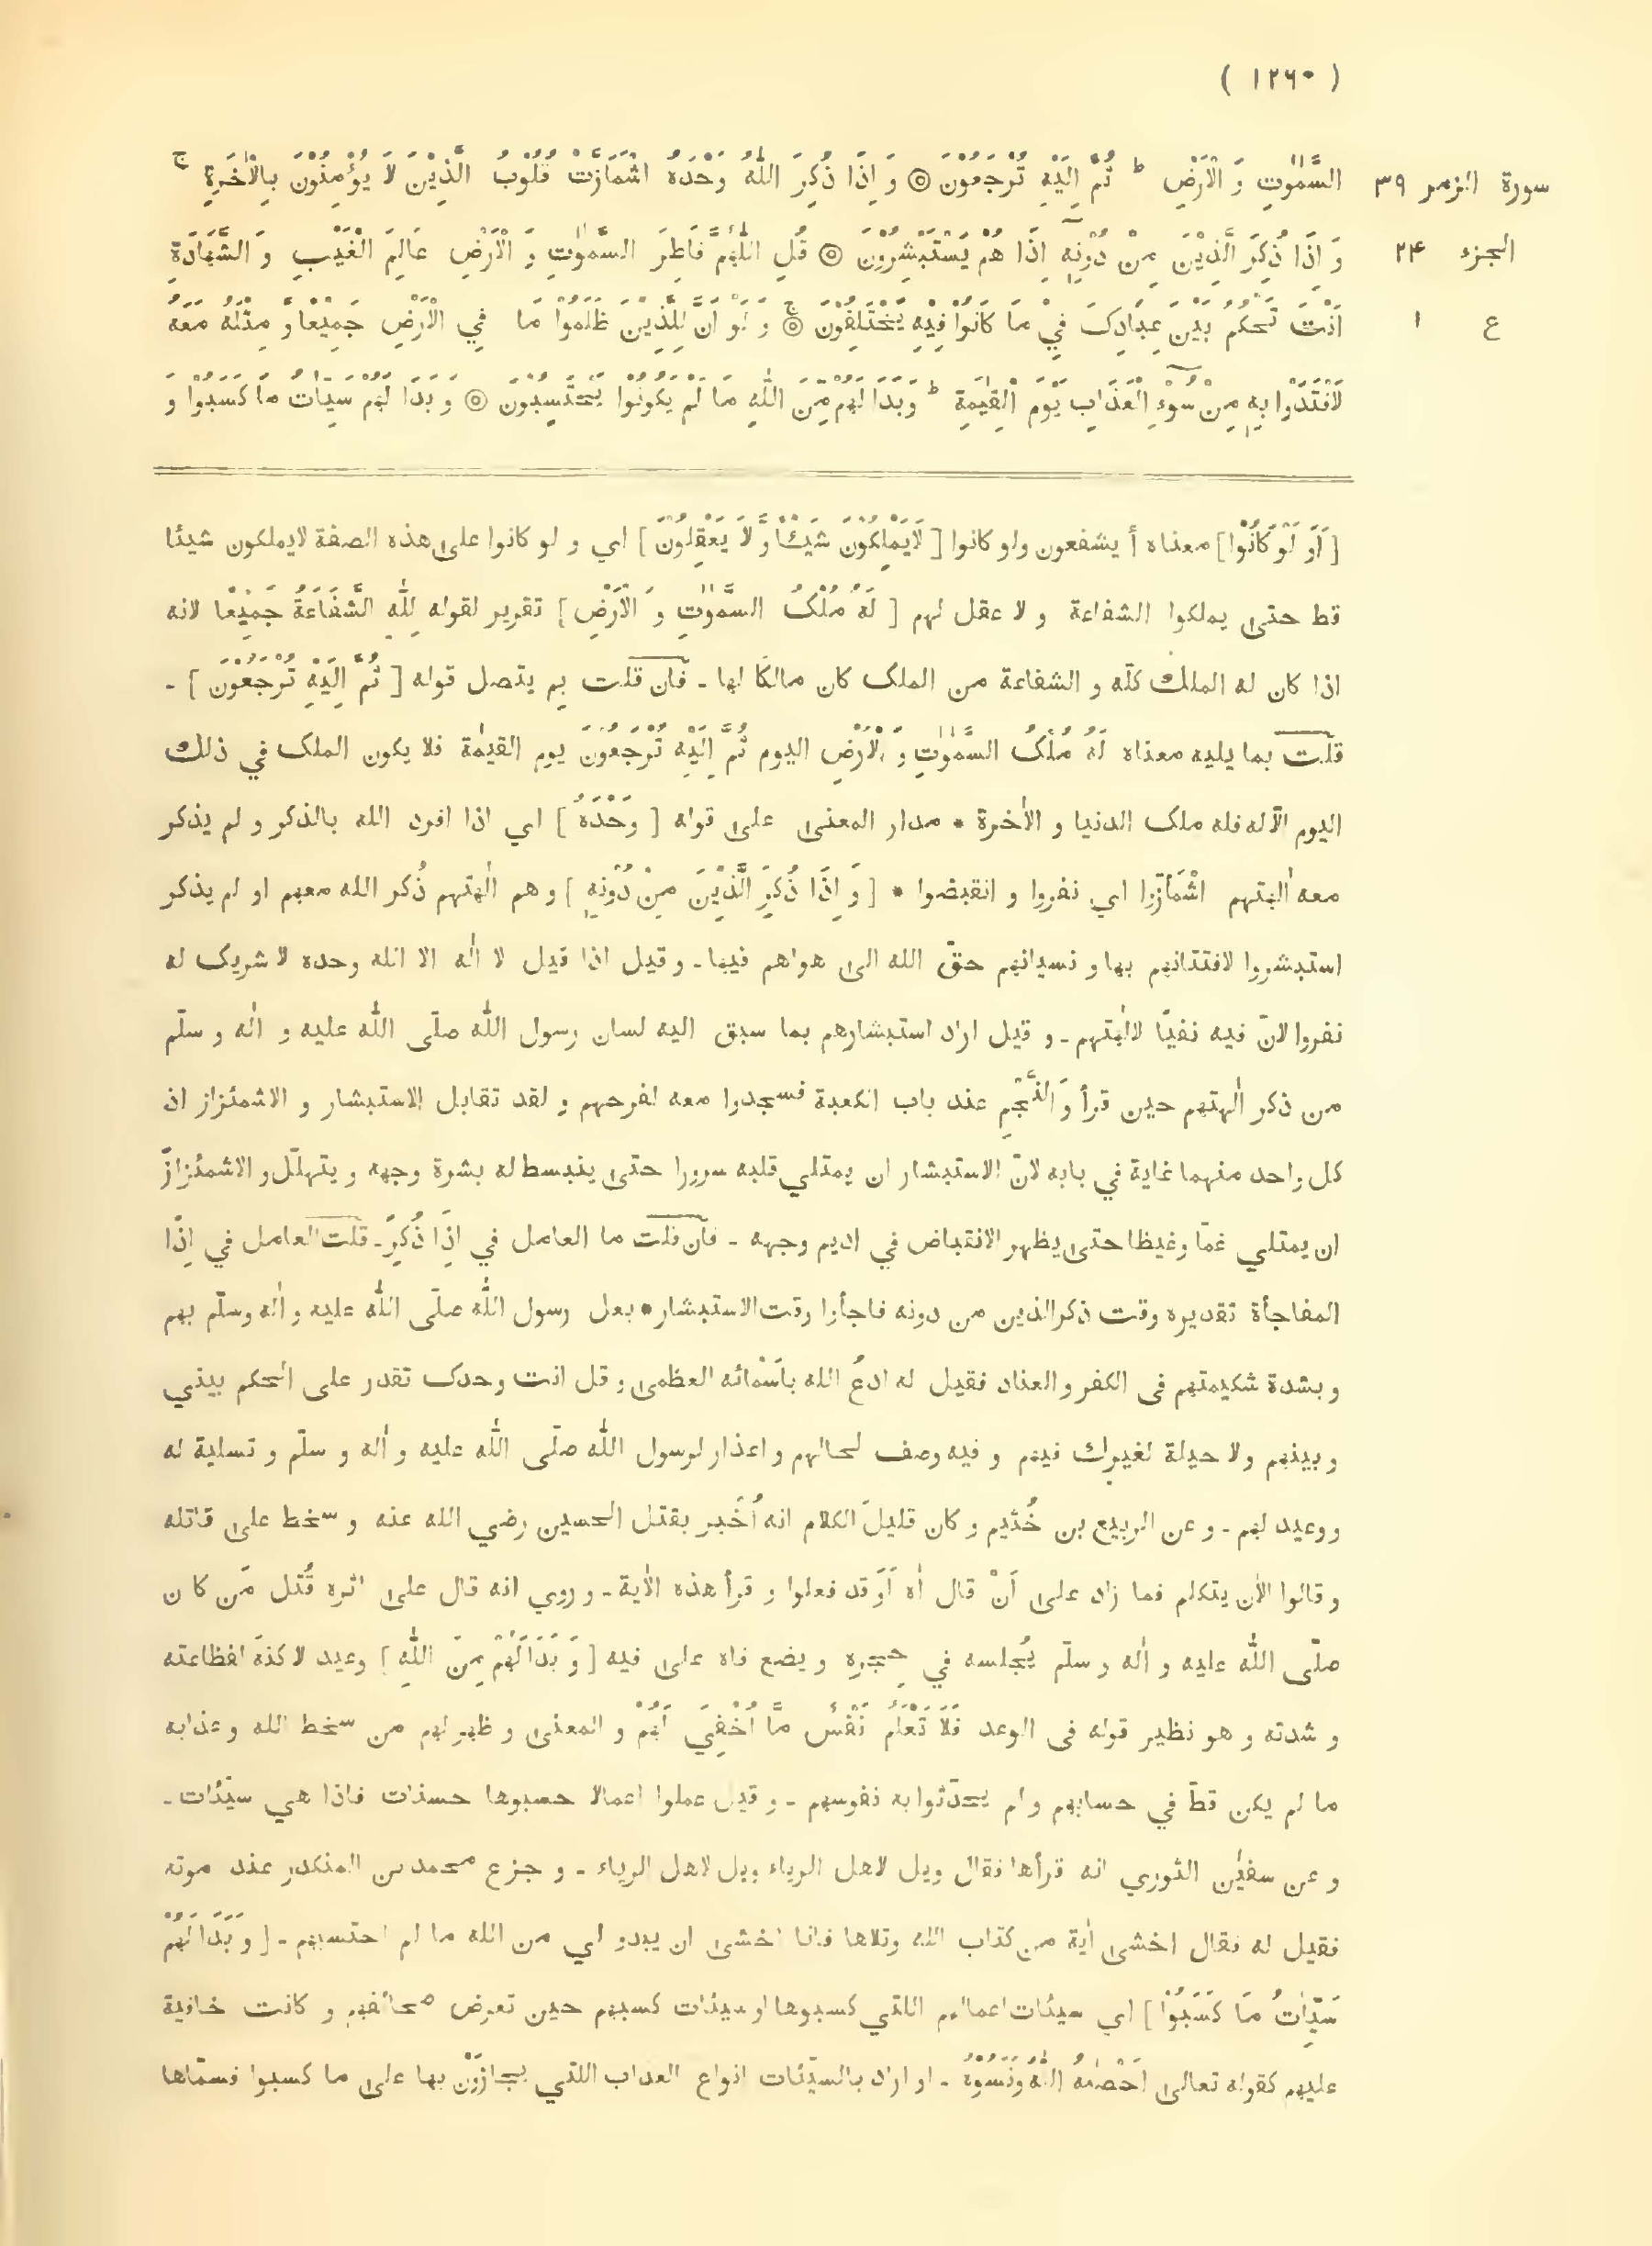 ( ١٢٦٠ )
سورة الزمر ٣٩
الجزء ٢٤
ع ١
السَّمٰوٰتِ وَ الْاَرْضِ ط ثُمَّ اِلَيْهِ تُرْجَعُوْنَ ۝ وَ اِذَا ذُكِرَ اللّٰهُ وَحْدَهُ اشْمَاَزَّتْ قُلُوْبُ الَّذِيْنَ لَا يُؤْمِنُوْنَ بِالْاٰخِرَةِ ج
وَ اِذَا ذُكِرَ الَّذِيْنَ مِنْ دُوْنِهٖٓ اِذَا هُمْ يَسْتَبْشِرُوْنَ ۝ قُلِ اللّٰهُمَّ فَاطِرَ السَّمٰوٰتِ وَ الْاَرْضِ عَالِمَ الْغَيْبِ وَ الشَّهَادَةِ
اَنْتَ تَحْكُمُ بَيْنَ عِبَادِكَ فِيْ مَا كَانُوْا فِيْهِ يَخْتَلِفُوْنَ ۝ ج وَ لَوْ اَنَّ لِلَّذِيْنَ ظَلَمُوْا مَا فِي الْاَرْضِ جَمِيْعًا وَّ مِثْلَهُ مَعَهُ
لَافْتَدَوْا بِهٖ مِنْ سُوْٓءِ الْعَذَابِ يَوْمَ الْقِيٰمَةِ ط وَبَدَا لَهُمْ مِّنَ اللّٰهِ مَا لَمْ يَكُوْنُوْا يَحْتَسِبُوْنَ ۝ وَ بَدَا لَهُمْ سَيِّاٰتُ مَا كَسَبُوْا وَ
[ اَوَ لَوْ كَانُوْا ] معناه أ يشفعون ولو كانوا [ لَايَمْلِكُوْنَ شَيْـًٔا وَّ لَا يَعْقِلُوْنَ ] اي و لو كانوا على هذه الصفة لايملكون شيئا
قط حتى يملكوا الشفاعة و لا عقل لهم [ لَهُ مُلْكُ السَّمٰوٰتِ وَ الْاَرْضِ ] تقرير لقوله لِلّٰهِ الشَّفَاعَةُ جَمِيْعًا لانه
اذا كان له الملك كلّه و الشفاعة من الملك كان مالكًا لها ـ فان قلت بم يتصل قوله [ ثُمَّ اِلَيْهِ تُرْجَعُوْنَ ] ـ
قلت بما يليه معناه لَهُ مُلْكُ السَّمٰوٰتِ وَ الْاَرْضِ اليوم ثُمَّ اِلَيْهِ تُرْجَعُوْنَ يوم القيٰمة فلا يكون الملك في ذلك
اليوم الّا له فله ملك الدنيا و الاٰخرة * مدار المعنى على قوله [ وَحْدَهُ ] اي اذا افرد الله بالذكر و لم يذكر
معه اٰلهتهم اشْمَأزّوا اي نفروا و انقبضوا * [ وَ اِذَا ذُكِرَ الَّذِيْنَ مِنْ دُوْنِهٖ ] و هم اٰلهتهم ذُكر الله معهم او لم يذكر
استبشروا لافتتانهم بها و نسيانهم حقّ الله الى هواهم فيها ـ و قيل اذا قيل لا اٰله الا الله وحده لا شريك له
نفروا لانّ فيه نفيًا لاٰلهتهم ـ و قيل اراد استبشارهم بما سبق اليه لسان رسول اللّٰه صلّى اللّٰه عليه و اٰله و سلّم
من ذكر اٰلهتهم حين قرأ وَالنَّجْمِ عند باب الكعبة فسجدوا معه لفرحهم و لقد تقابل الاستبشار و الاشمئزاز اذ
كل واحد منهما غاية في بابه لانّ الاستبشار ان يمتلي قلبه سرورا حتى ينبسط له بشرة وجهه و يتهلّل و الاشمئزازَ
ان يمتلي غمّا و غيظا حتى يظهر الانقباض في اديم وجهه ـ فان قلت ما العامل في اِذَا ذُكِرَ ـ قلت العامل في اِذَا
المفاجأة تقديره وقت ذكر الذين من دونه فاجأوا وقت الاستبشار * بعل رسول اللّٰه صلّى اللّٰه عليه و اٰله وسلّم بهم
و بشدة شكيمتهم فى الكفر و العناد فقيل له ادعُ الله باَسْمائه العظمى و قل انت وحدك تقدر على الحكم بيني
و بينهم و لا حيلة لغيرك فيهم و فيه وصف لحالهم و اعذار لرسول اللّٰه صلّى اللّٰه عليه و اٰله و سلّم و تسلية له
و وعيد لهم ـ و عن الربيع بن خُثيم و كان قليلَ الكلام انه اُخْبر بقتل الحسين رضي الله عنه و سخط على قاتله
و قالوا الاٰن يتكلم فما زاد على اَنْ قال اٰه اَوَ قد فعلوا و قرأ هذه الاٰية ـ و روي انه قال على اثره قُتل مَن كان
صلّى اللّٰه عليه و اٰله و سلّم يُجلسه في حِجره و يضع فاه على فيه [ وَ بَدَا لَهُمْ مِنَ اللّٰهِ ] وعيد لا كنهَ لفظاعته
و شدته و هو نظير قوله فى الوعد فَلَا تَعْلَمُ نَفْسٌ مَّا اُخْفِيَ لَهُمْ و المعنى و ظهر لهم من سخط الله و عذابه
ما لم يكن قطّ في حسابهم و لم يحدّثوا به نفوسهم ـ و قيل عملوا اعمالا حسبوها حسنات فاذا هي سيّئات ـ
و عن سفيٰن الثوري انه قرأها فقال ويل لاهل الرياء ويل لاهل الرياء ـ و جزع محمد بن المنكدر عند موته
فقيل له فقال اخشى اٰية من كتاب الله وتلاها فانا اخشى ان يبدو لي من الله ما لم احتسبهم ـ [ وَ بَدَا لَهُمْ
سَيِّاٰتُ مَا كَسَبُوْا ] اي سيئات اعمالهم اللتي كسبوها او سيئات كسبهم حين تعرض صحائفهم و كانت خافية
عليهم كقوله تعالى اَحْصٰىهُ اللّٰهُ وَنَسُوْهُ ـ او اراد بالسيّئات انواع العذاب اللتي يجازَوْن بها على ما كسبوا فسمّاها